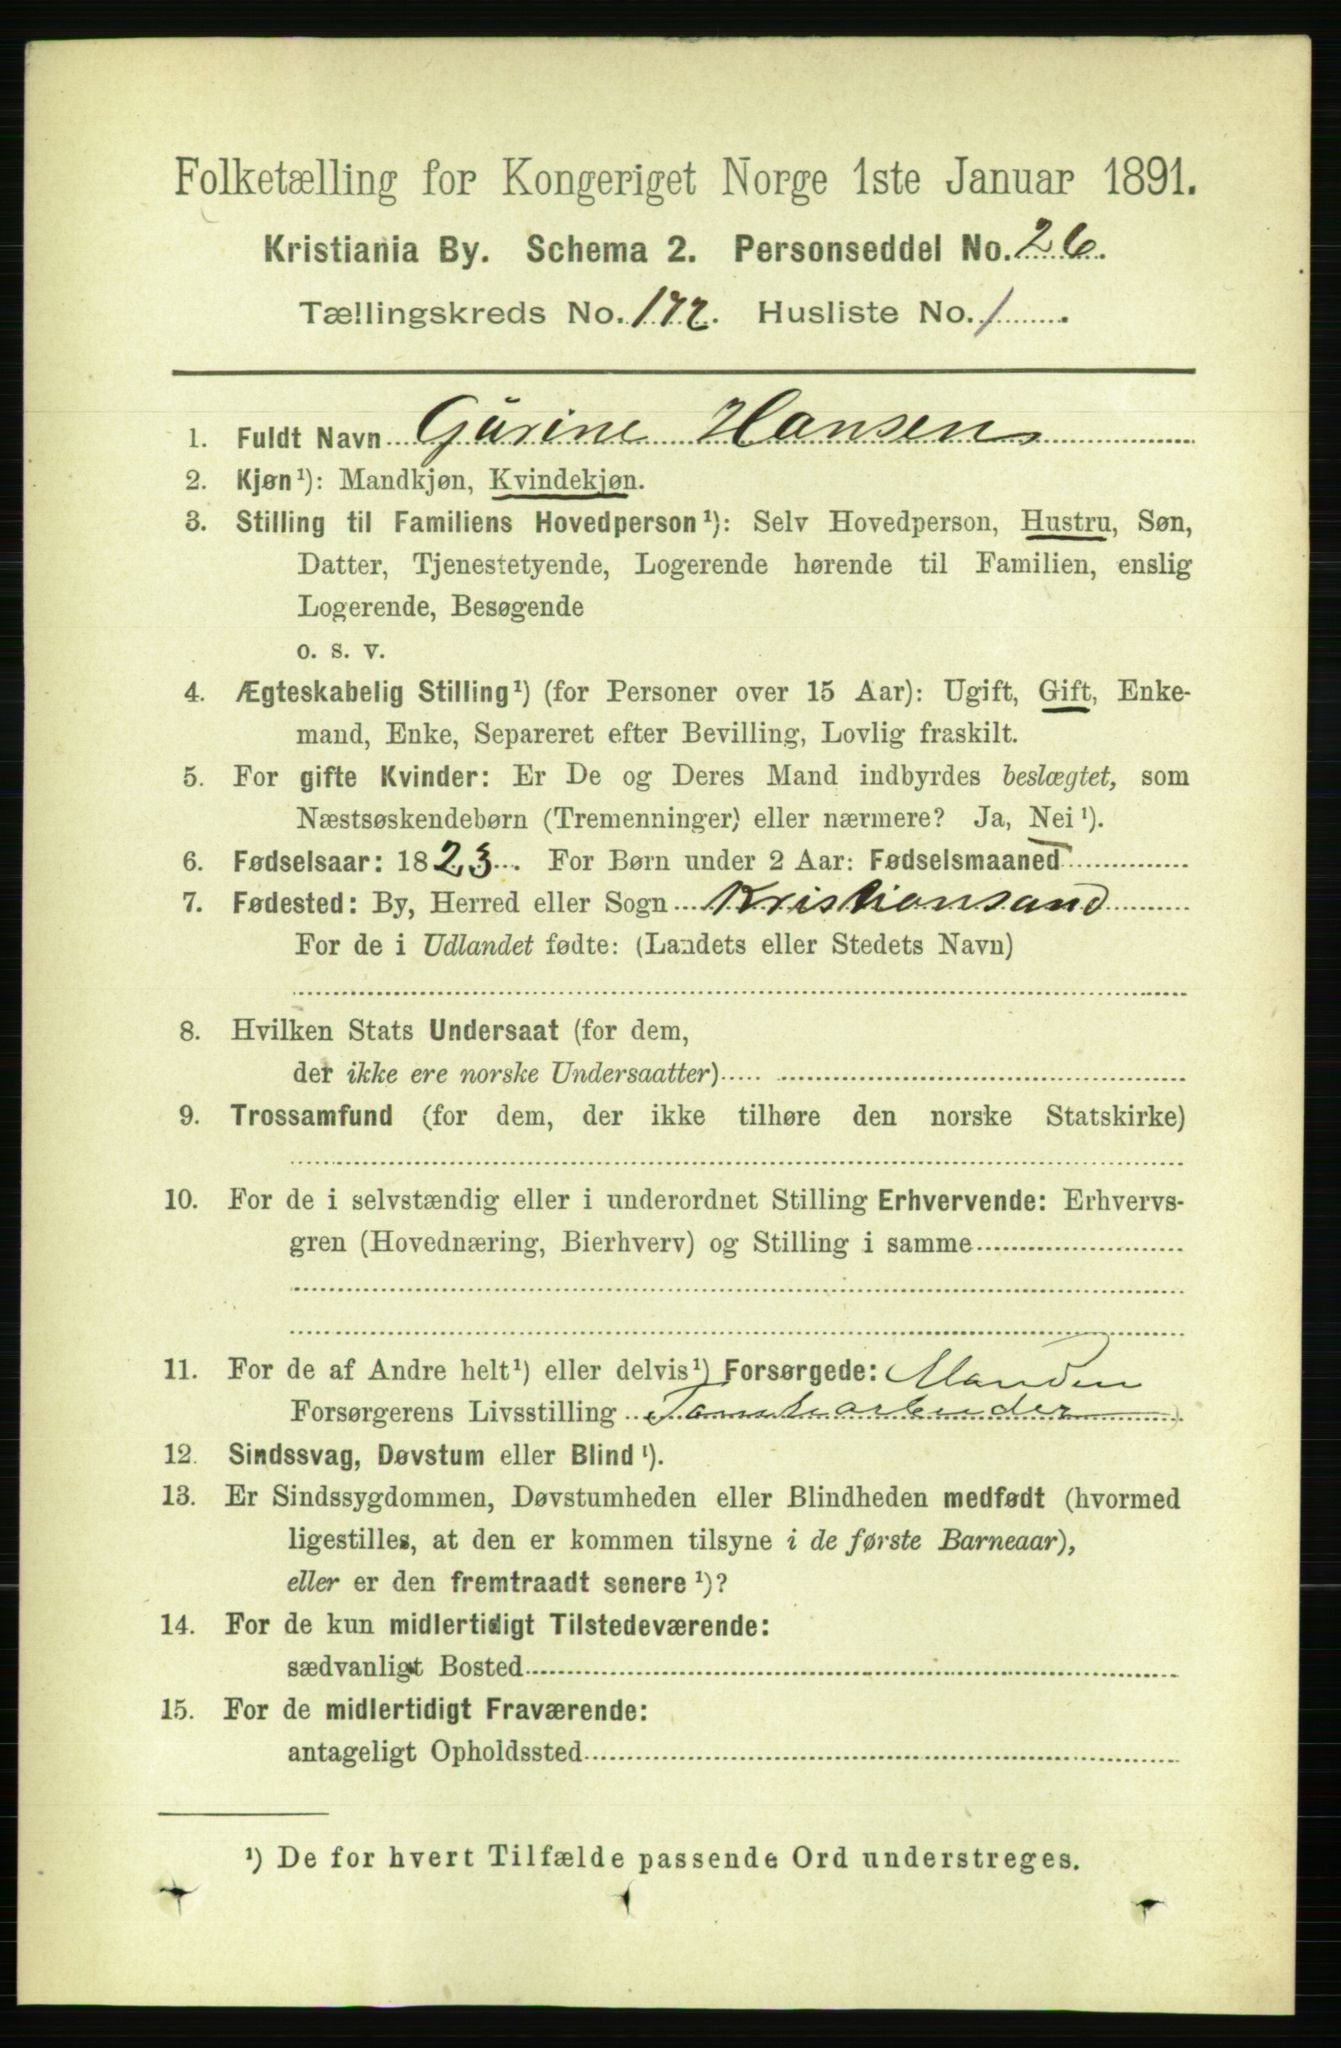 Folketælling for Kongeriget Norge 1ste Januar 1891.
Kristiania By. Schema 2. Personseddel No. 26.
Tællingskreds No. 172. Husliste No. 1
1. Fuldt Navn Gurine Hansen
2. Kjøn¹): Mandkjøn, Kvindekjøn.
3. Stilling til Familiens Hovedperson¹): Selv Hovedperson, Hustru, Søn,
Datter, Tjenestetyende, Logerende hørende til Familien, enslig
Logerende, Besøgende
o. s. v.
4. Ægteskabelig Stilling¹) (for Personer over 15 Aar): Ugift, Gift, Enke-
mand, Enke, Separeret efter Bevilling, Lovlig fraskilt.
5. For gifte Kvinder: Er De og Deres Mand indbyrdes beslægtet, som
Næstsøskendebørn (Tremenninger) eller nærmere? Ja, Nei¹).
6. Fødselsaar: 1823. For Børn under 2 Aar: Fødselsmaaned
7. Fødested: By, Herred eller Sogn Kristiansand
For de i Udlandet fødte: (Landets eller Stedets Navn)
8. Hvilken Stats Undersaat (for dem,
der ikke ere norske Undersaatter)
9. Trossamfund (for dem, der ikke tilhøre den norske Statskirke)
10. For de i selvstændig eller i underordnet Stilling Erhvervende: Erhvervs-
gren (Hovednæring, Bierhverv) og Stilling i samme
11. For de af Andre helt¹) eller delvis¹) Forsørgede: Manden
Forsørgerens Livsstilling
12. Sindssvag, Døvstum eller Blind¹).
13. Er Sindssygdommen, Døvstumheden eller Blindheden medfødt (hvormed
ligestilles, at den er kommen tilsyne i de første Barneaar),
eller er den fremtraadt senere¹)?
14. For de kun midlertidigt Tilstedeværende:
sædvanligt Bosted
15. For de midlertidigt Fraværende:
antageligt Opholdssted
¹) De for hvert Tilfælde passende Ord understreges.